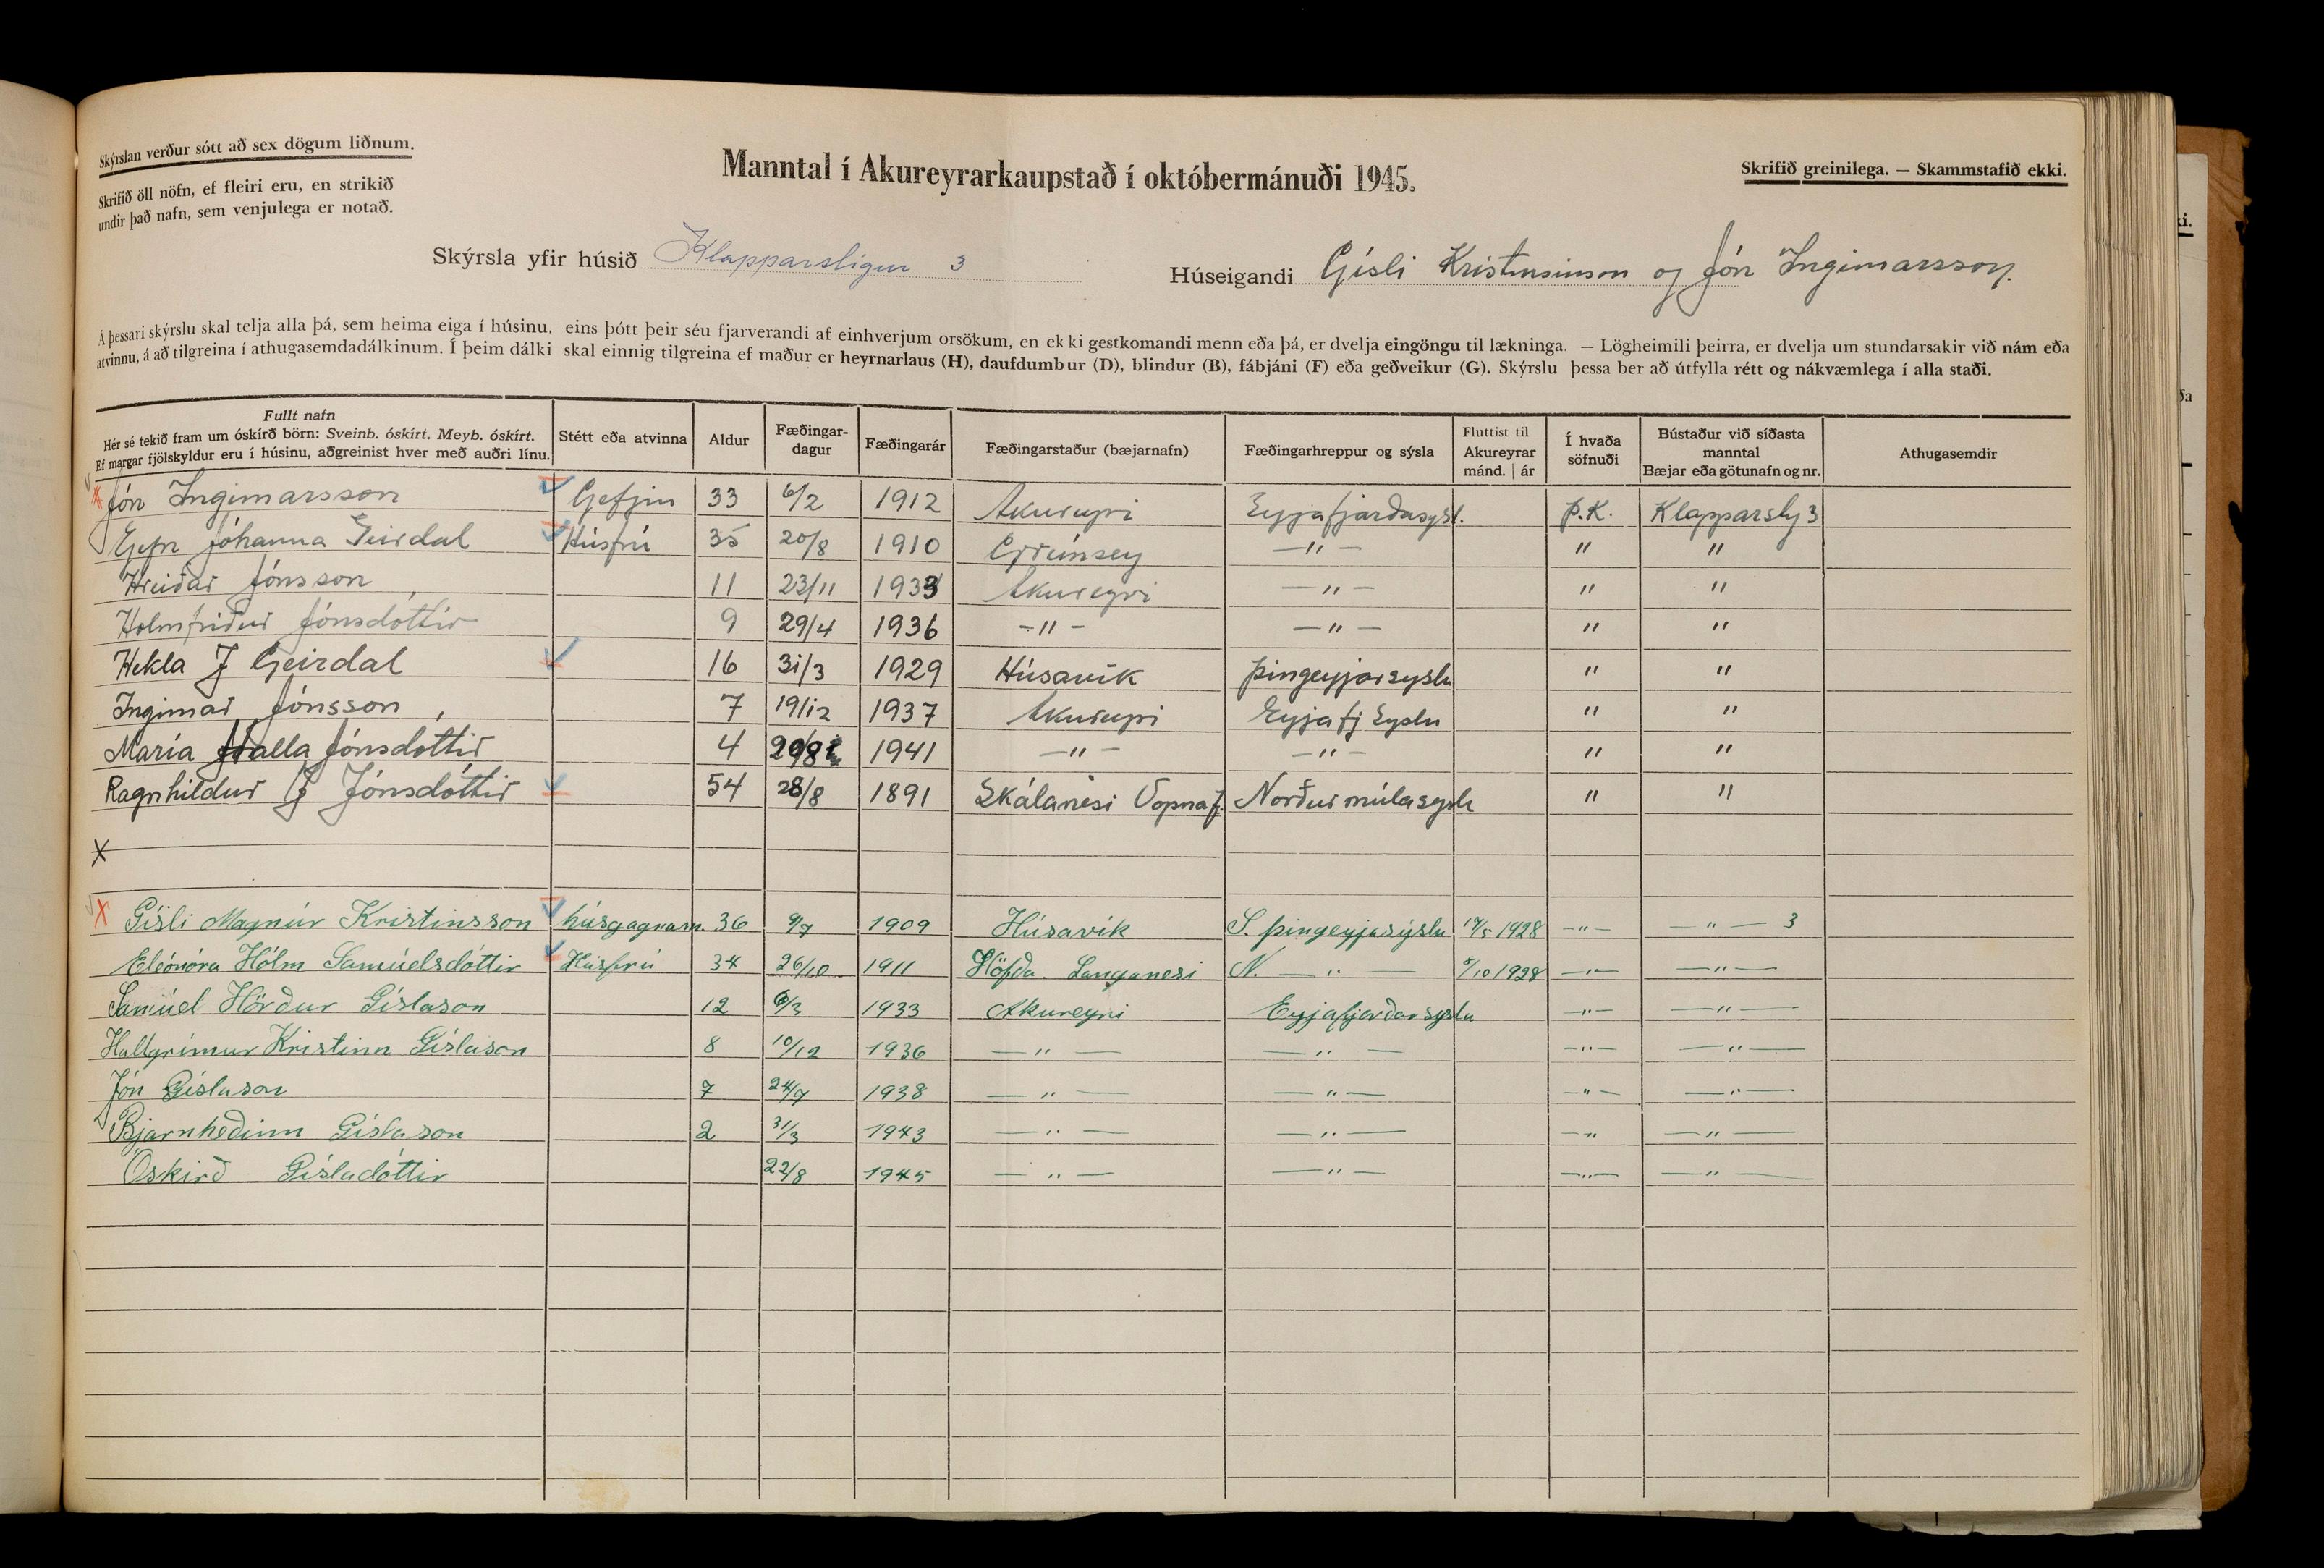 Skýrslan verður sótt að sex dögum liðnum.
Skrifið öll nöfn, ef fleiri eru, en strikið
undir það nafn, sem venjulega er notað.
Manntal í Akureyrarkaupstað í októbermánuði 1945.
Skrifið greinilega. — Skammstafið ekki.
Skýrsla yfir húsið Klapparstígur 3
Húseigandi Gísli Kristinsson og Jón Ingimarsson.
Á þessari skýrslu skal telja alla þá, sem heima eiga í húsinu, eins þótt þeir séu fjarverandi af einhverjum orsökum, en ekki gestkomandi menn eða þá, er dvelja eingöngu til lækninga. — Lögheimili þeirra, er dvelja um stundarsakir við nám eða
atvinnu, á að tilgreina í athugasemdadálkinum. Í þeim dálki skal einnig tilgreina ef maður er heyrnarlaus (H), daufdumbur (D), blindur (B), fábjáni (F) eða geðveikur (G). Skýrslu þessa ber að útfylla rétt og nákvæmlega í alla staði.
Fullt nafn
Hér sé tekið fram um óskírð börn: Sveinb. óskírt. Meyb. óskírt.
Ef margar fjölskyldur eru í húsinu, aðgreinist hver með auðri línu.
Stétt eða atvinna
Aldur
Fæðingar-
dagur
Fæðingarár
Fæðingarstaður (bæjarnafn)
Fæðingarhreppur og sýsla
Fluttist til
Akureyrar
mánd. | ár
Í hvaða
söfnuði
Bústaður við síðasta
manntal
Bæjar eða götunafn og nr.
Athugasemdir
Jón Ingimarsson Gefjun 33 6/2 1912 Akureyri Eyjafjarðasýsl. Þ.K. Klapparstg 3
Gefn Jóhanna Geirdal Húsfrú 35 20/8 1910 Grímsey —"— " "
Hreiðar Jónsson 11 23/11 1933 Akureyri —"— " "
Holmfriður Jónsdóttir 9 29/4 1936 —"— —"— " "
Hekla J Geirdal 16 31/3 1929 Húsavík Þingeyjarsyslu " "
Ingimar Jónsson 7 19/12 1937 Akureyri Eyjafj Syslu " "
María Halla Jónsdóttir 4 29/8 1941 —"— —"— " "
Ragnhildur J Jónsdóttir 54 28/8 1891 Skálanesi Vopnaf. Norðurmúlasyslu " "
Gísli Magnús Kristinsson húsgagnam. 36 9/7 1909 Húsavík S. Þingeyjasýslu 14/5 1928 —"— —"— 3
Eleónóra Hólm Samúelsdóttir Húsfrú 34 26/10 1911 Höfða. Langanesi N. —"— 5/10 1928 —"— —"—
Samúel Hörður Gíslason 12 6/3 1933 Akureyri Eyjafjarðarsyslu —"— —"—
Hallgrímur Kristinn Gíslason 8 10/12 1936 —"— —"— —"— —"—
Jón Gíslason 7 24/9 1938 —"— —"— —"— —"—
Bjarnheðinn Gíslason 2 31/3 1943 —"— —"— —"— —"—
Óskírð Gísladóttir 22/8 1945 —"— —"— —"— —"—